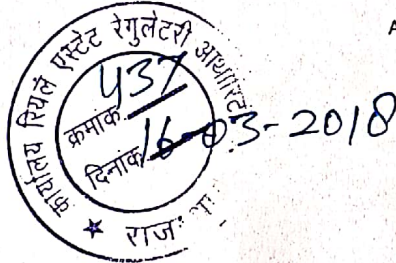 कार्यालय रियल एस्टेट रेगुलेटरी
क्रमांक 437
दिनांक 16-03-2018
राज
A